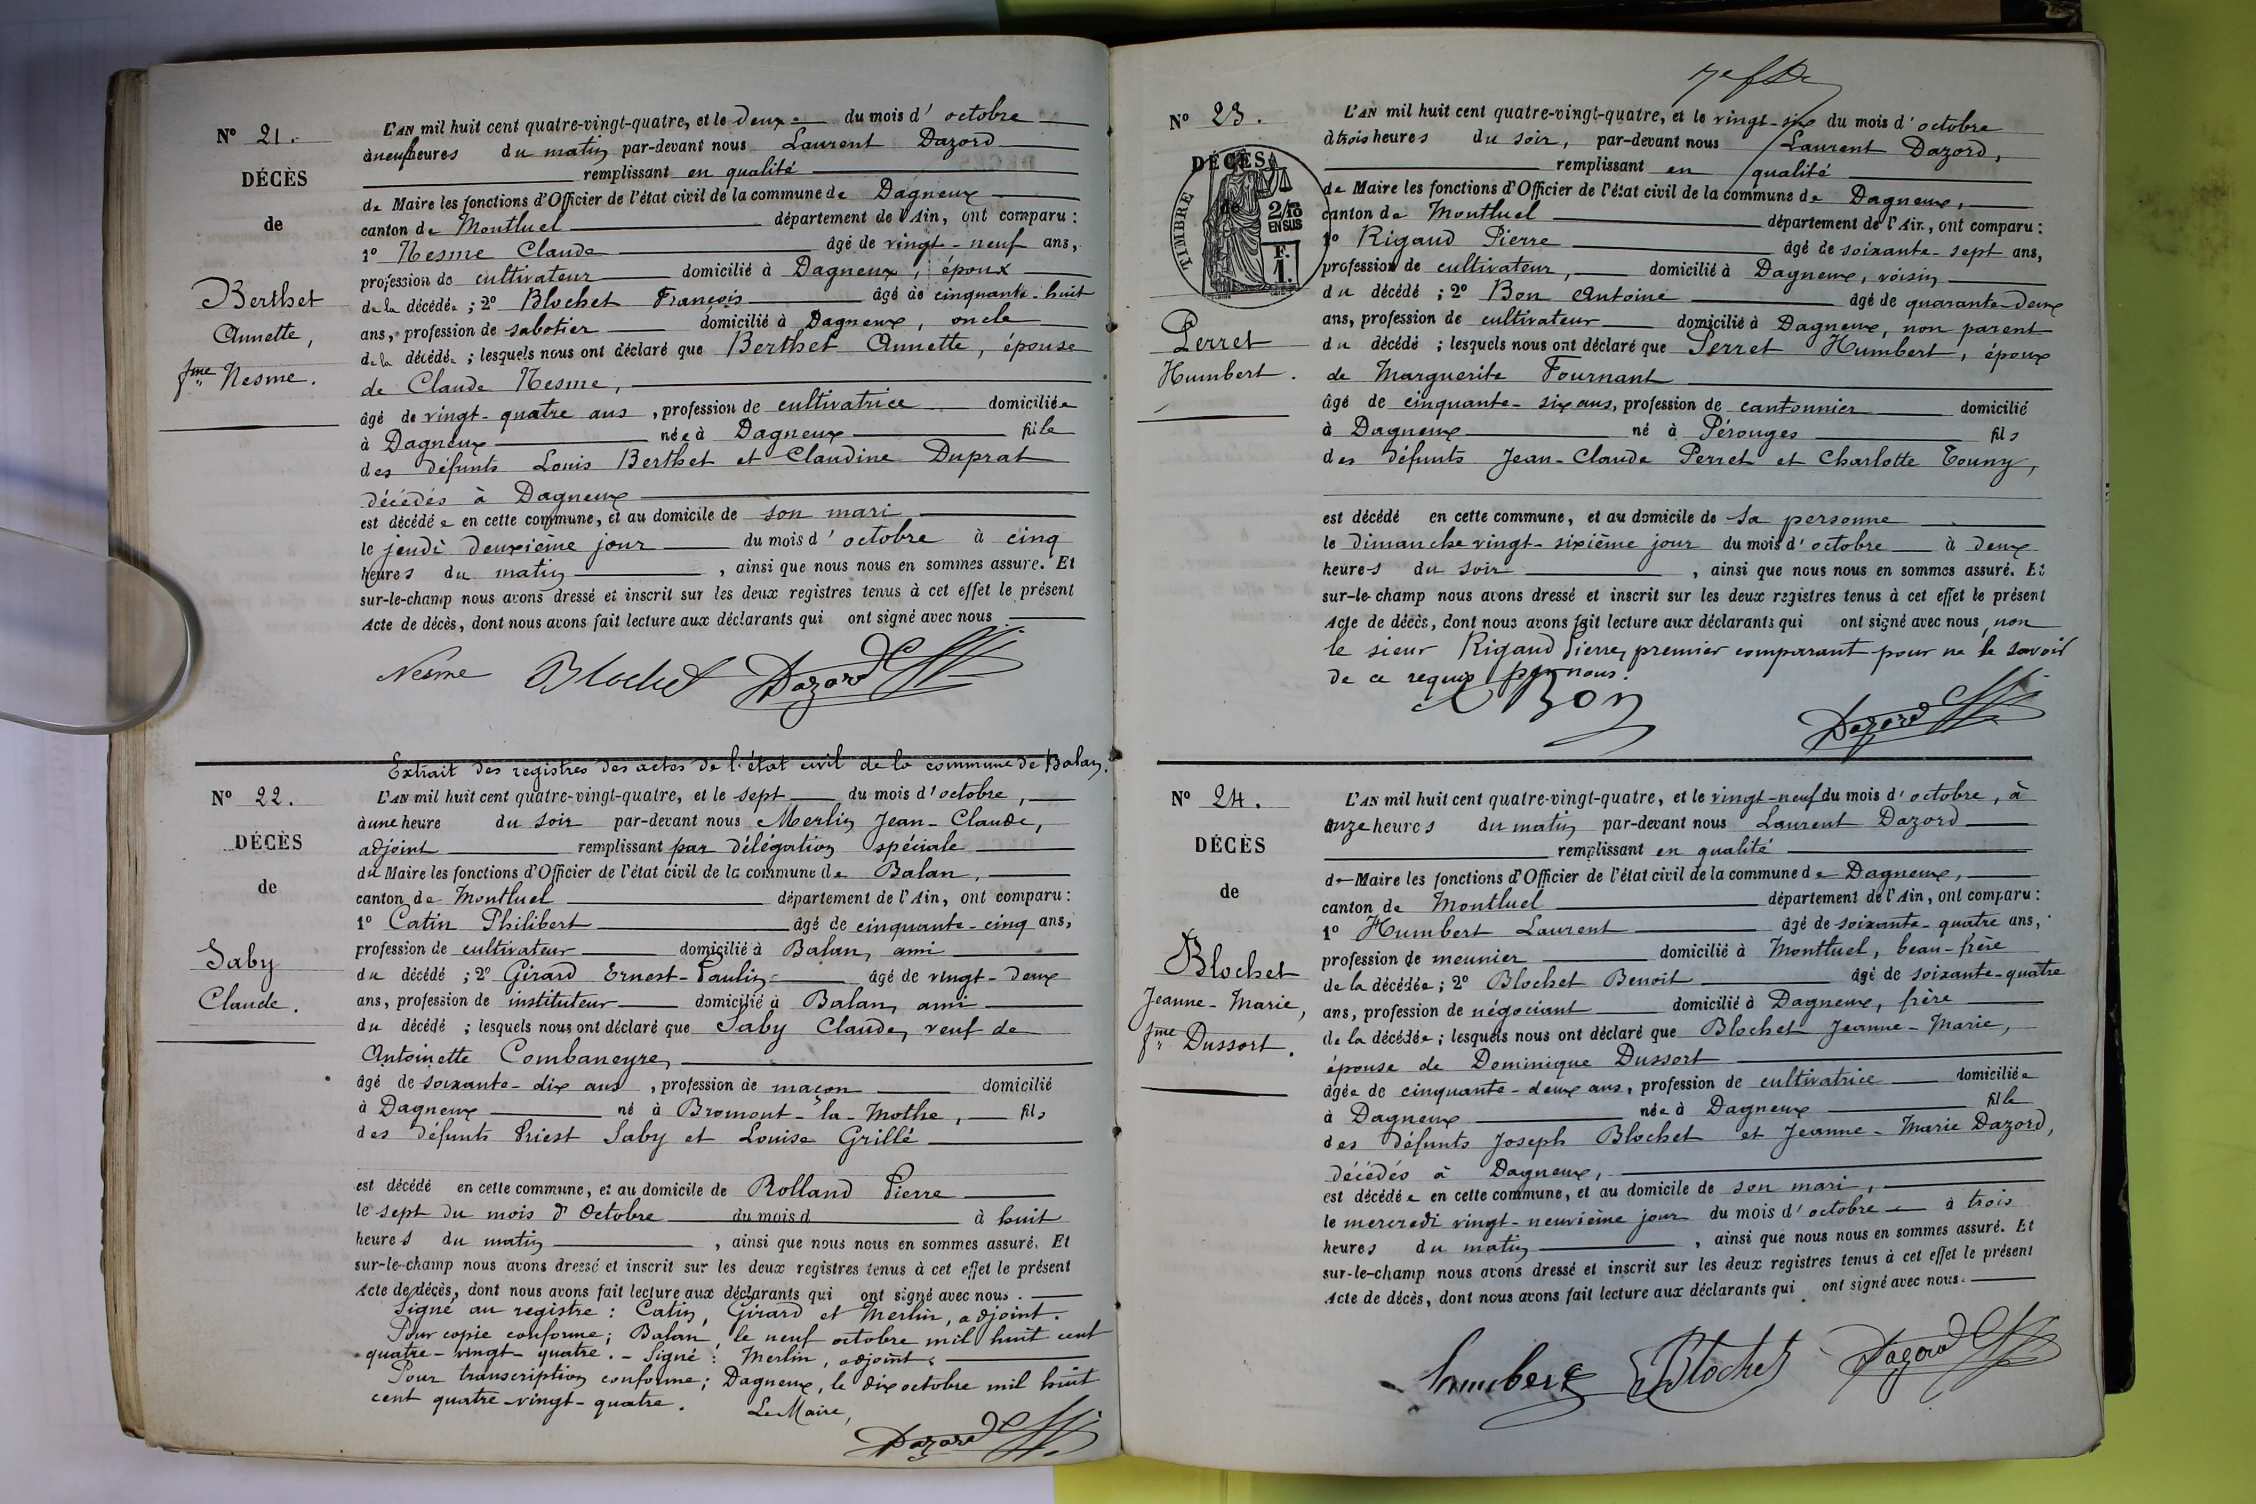 Nº 21.
DÉCÈS
de
Berthet
Annette,
fme Nesme.
L'AN mil huit cent quatre-vingt-quatre, et le deux du mois d'octobre
à neuf heures du matin par-devant nous Laurent Dazord
remplissant en qualité
de Maire les fonctions d'Officier de l'état civil de la commune de Dagneux
canton de Montluel département de l'Ain, ont comparu :
1º Nesme Claude âgé de vingt-neuf ans,
profession de cultivateur domicilié à Dagneux, époux
de la décédée ; 2º Blochet François âgé de cinquante-huit
ans, profession de sabotier domicilié à Dagneux, oncle
de la décédée ; lesquels nous ont déclaré que Berthet Annette, épouse
de Claude Nesme,
âgé de vingt-quatre ans, profession de cultivatrice domiciliée
à Dagneux née à Dagneux fille
des défunts Louis Berthet et Claudine Duprat
décédés à Dagneux
est décédée en cette commune, et au domicile de son mari
le jeudi deuxième jour du mois d'octobre à cinq
heures du matin, ainsi que nous nous en sommes assuré. Et
sur-le-champ nous avons dressé et inscrit sur les deux registres tenus à cet effet le présent
Acte de décès, dont nous avons fait lecture aux déclarants qui ont signé avec nous.
Nesme Blochet Dazord
Extrait des registres des actes de l'état civil de la commune de Balan.
Nº 22.
DÉCÈS
de
Saby
Claude.
L'AN mil huit cent quatre-vingt-quatre, et le sept du mois d'octobre,
à une heure du soir par-devant nous Merlin Jean-Claude,
adjoint remplissant par délégation spéciale
du Maire les fonctions d'Officier de l'état civil de la commune de Balan,
canton de Montluel département de l'Ain, ont comparu :
1º Catin Philibert âgé de cinquante-cinq ans,
profession de cultivateur domicilié à Balan, ami
du décédé ; 2º Girard Ernest-Paulin âgé de vingt-deux
ans, profession de instituteur domicilié à Balan, ami
du décédé ; lesquels nous ont déclaré que Saby Claude, veuf de
Antoinette Combaneyre,
âgé de soixante-dix ans, profession de maçon domicilié
à Dagneux né à Bromont-la-Mothe, fils
des défunts Priest Saby et Louise Grillé
est décédé en cette commune, et au domicile de Rolland Pierre
le sept du mois d'Octobre du mois d à huit
heures du matin, ainsi que nous nous en sommes assuré. Et
sur-le-champ nous avons dressé et inscrit sur les deux registres tenus à cet effet le présent
Acte de décès, dont nous avons fait lecture aux déclarants qui ont signé avec nous.
Signé au registre : Catin, Girard et Merlin, adjoint.
Pour copie conforme ; Balan, le neuf octobre mil huit cent
quatre-vingt-quatre. - Signé : Merlin, adjoint.
Pour transcription conforme ; Dagneux, le dix octobre mil huit
cent quatre-vingt-quatre. Le Maire,
Dazord
Nº 23.
DÉCÈS
de
TIMBRE
2/10
EN SUS
F.
1.
Perret
Humbert.
L'AN mil huit cent quatre-vingt-quatre, et le vingt-six du mois d'octobre
à trois heures du soir, par-devant nous Laurent Dazord,
remplissant en qualité
de Maire les fonctions d'Officier de l'état civil de la commune de Dagneux,
canton de Montluel département de l'Ain, ont comparu :
1º Rigaud Pierre âgé de soixante-sept ans,
profession de cultivateur, domicilié à Dagneux, voisin
du décédé ; 2º Bon Antoine âgé de quarante-deux
ans, profession de cultivateur domicilié à Dagneux, non parent
du décédé ; lesquels nous ont déclaré que Perret Humbert, époux
de Marguerite Fournant
âgé de cinquante-six ans, profession de cantonnier domicilié
à Dagneux né à Pérouges fils
des défunts Jean-Claude Perret et Charlotte Touny,
est décédé en cette commune, et au domicile de sa personne
le dimanche vingt-sixième jour du mois d'octobre à deux
heures du soir, ainsi que nous nous en sommes assuré. Et
sur-le-champ nous avons dressé et inscrit sur les deux registres tenus à cet effet le présent
Acte de décès, dont nous avons fait lecture aux déclarants qui ont signé avec nous, non
le sieur Rigaud Pierre, premier comparant pour ne le savoir
de ce requis par nous.
A Bon Dazord
Nº 24.
DÉCÈS
de
Blochet
Jeanne-Marie,
fme Dussort.
L'AN mil huit cent quatre-vingt-quatre, et le vingt-neuf du mois d'octobre, à
onze heures du matin par-devant nous Laurent Dazord
remplissant en qualité
de Maire les fonctions d'Officier de l'état civil de la commune de Dagneux,
canton de Montluel département de l'Ain, ont comparu :
1º Humbert Laurent âgé de soixante-quatre ans,
profession de meunier domicilié à Montluel, beau-frère
de la décédée ; 2º Blochet Benoit âgé de soixante-quatre
ans, profession de négociant domicilié à Dagneux, frère
de la décédée ; lesquels nous ont déclaré que Blochet Jeanne-Marie,
épouse de Dominique Dussort
âgée de cinquante-deux ans, profession de cultivatrice domiciliée
à Dagneux née à Dagneux fille
des défunts Joseph Blochet et Jeanne-Marie Dazord,
décédés à Dagneux,
est décédée en cette commune, et au domicile de son mari,
le mercredi vingt-neuvième jour du mois d'octobre à trois
heures du matin, ainsi que nous nous en sommes assuré. Et
sur-le-champ nous avons dressé et inscrit sur les deux registres tenus à cet effet le présent
Acte de décès, dont nous avons fait lecture aux déclarants qui ont signé avec nous.
humbert Blochet Dazord